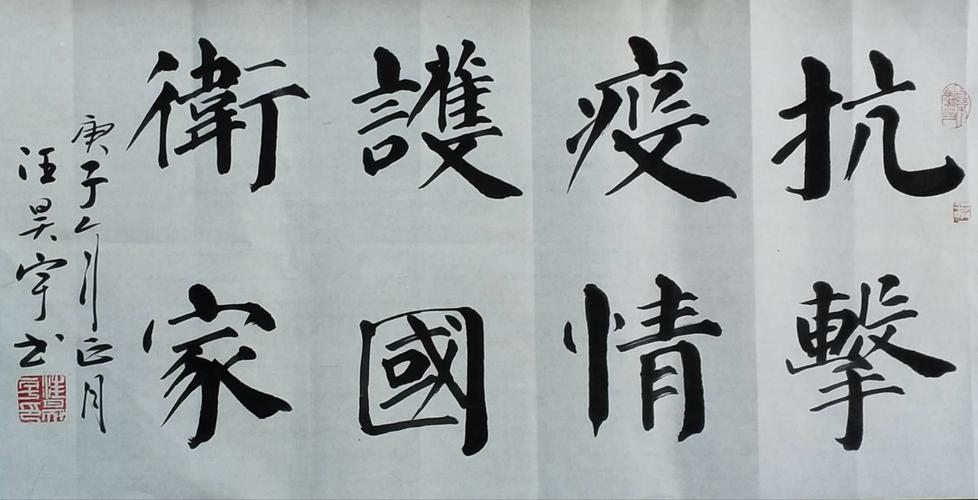 抗擊
疫情
護國
衛家
庚子年正月
汪昊宇书